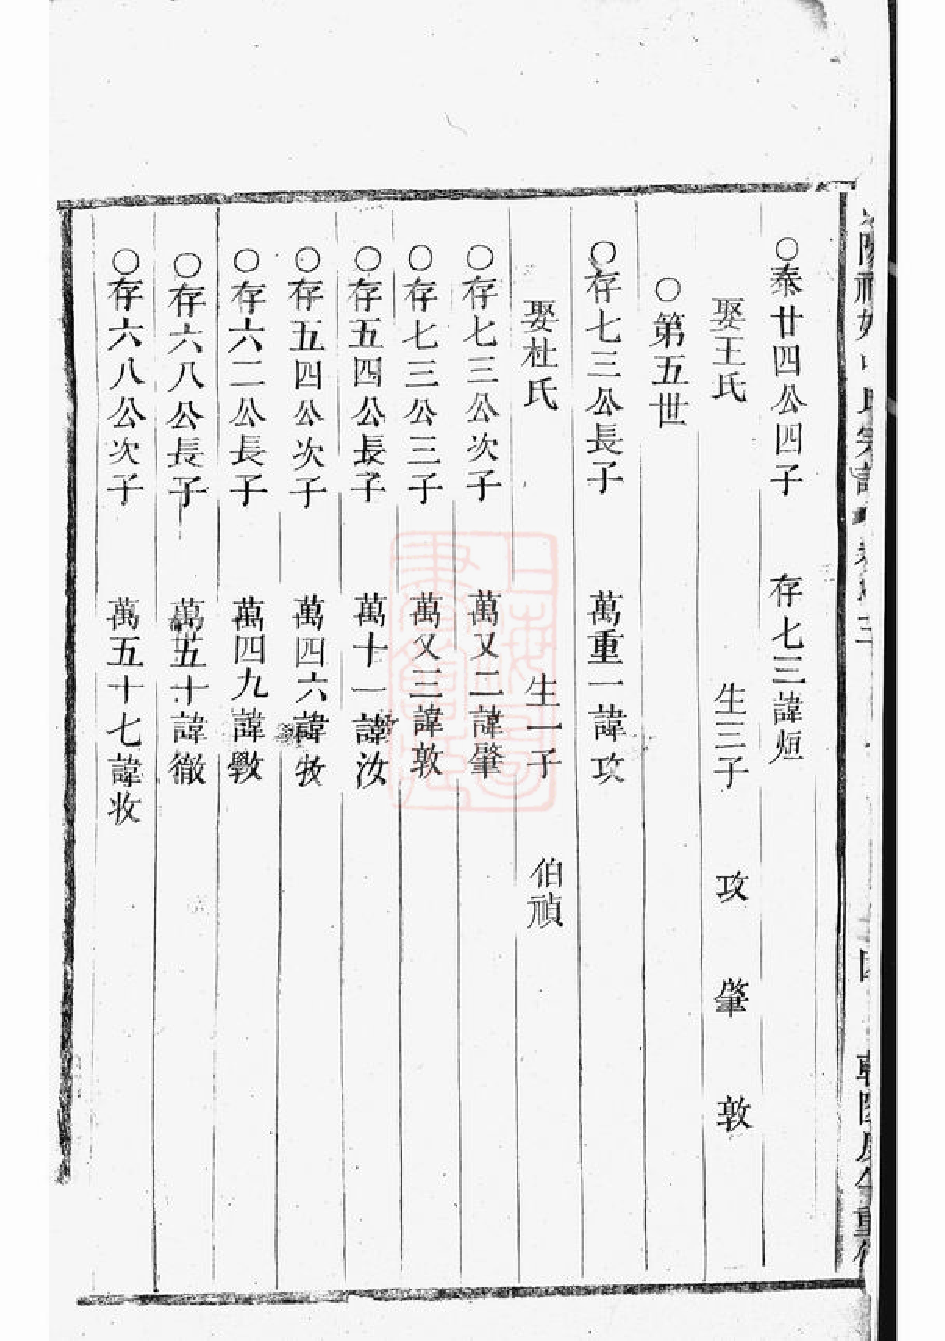 ○泰廿四公四子 存七三諱烜
娶王氏 生三子 攻 肇 敦
○第五世
○存七三公長子 萬重一諱攻
娶杜氏 生一子 伯禎
○存七三公次子 萬又二諱肇
○存七三公三子 萬又三諱敦
○存五四公長子 萬十一諱汝
○存五四公次子 萬四六諱牧
○存六二公長子 萬四九諱斆
○存六八公長子 萬五十諱徹
○存六八公次子 萬五十七諱收